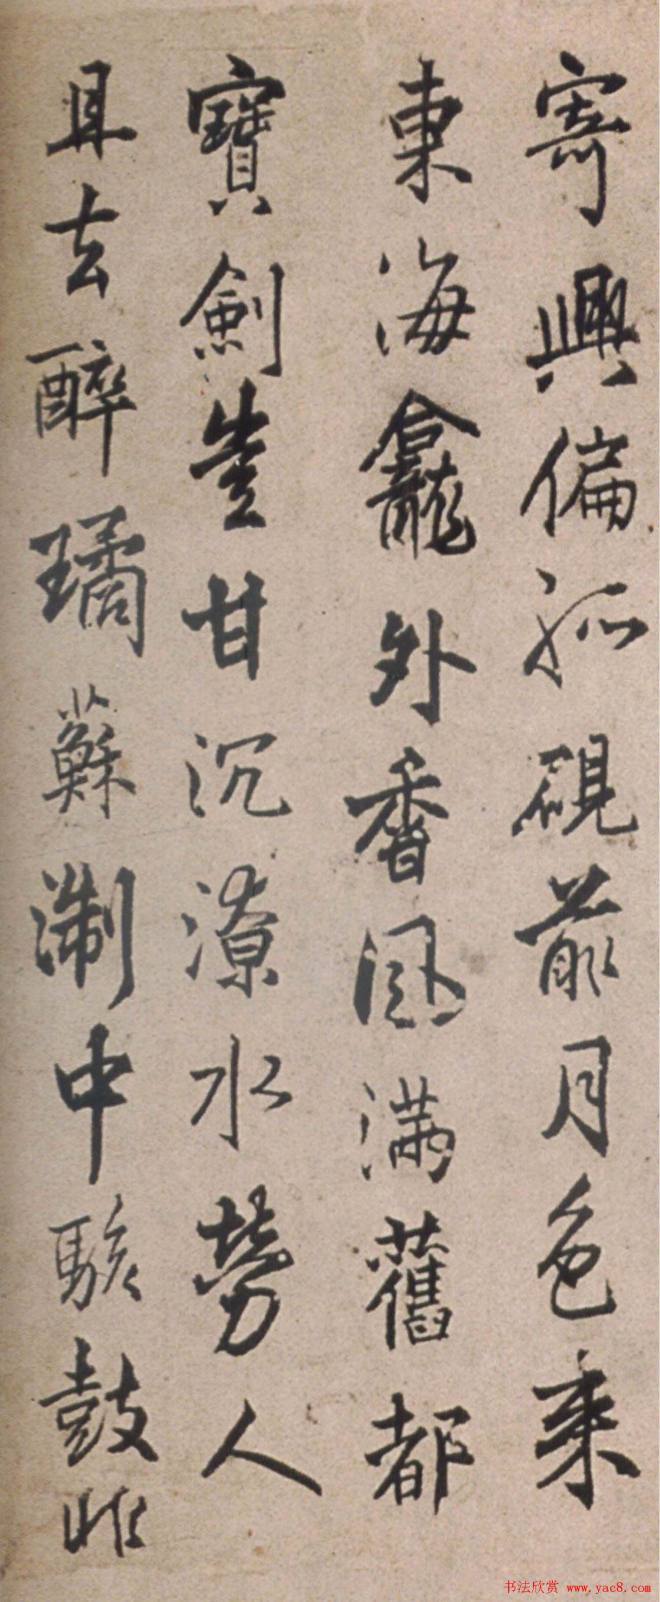 寄興偏孤硯前月色來
東海龕外香風滿舊都
寶劍豈甘沉潦水勞人
且去醉 蘇淛中駭鼓
书法欣赏 www.yac8.com